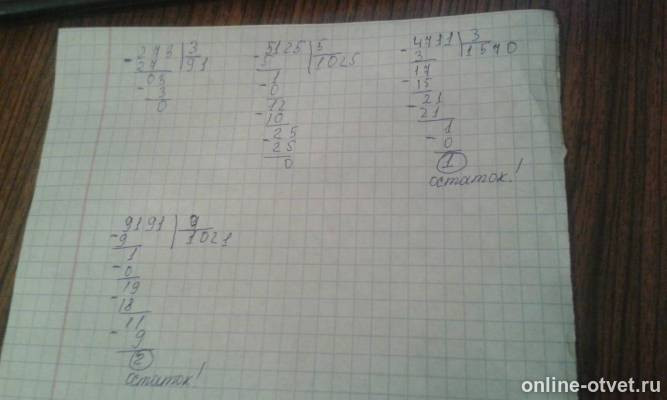 - 273 | 3
27 | 91
03
- 3
0
- 5125 | 5
5 | 1025
1
- 0
12
- 10
25
- 25
0
- 4711 | 3
3 | 1570
17
- 15
21
- 21
1
- 0
1
остаток!
- 9191 | 9
9 | 1021
1
- 0
19
- 18
11
- 9
2
остаток!
online-otvet.ru